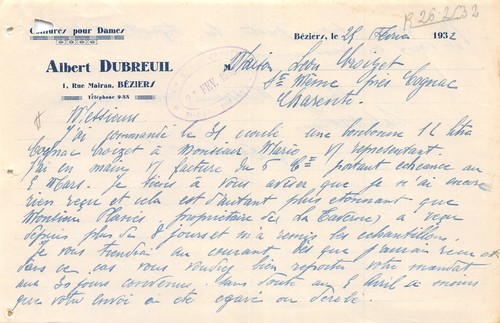 R 26.2.32
Coiffures pour Dames
Albert DUBREUIL
1, Rue Mairan, BÉZIERS
Téléphone 9-55
Béziers, le 25 février 1932
M Maison Léon Croizet
St Même près Cognac
Charente.
Messieurs
J'ai commandé le 31 écoulé une bonbonne 12 litres
Cognac Croizet à Monsieur Mario V/ représentant.
J'ai en mains V/ facture du 5 Ct portant échéance au
5 Mars. Je tiens à vous aviser que je n'ai encore
rien reçu et cela est d'autant plus étonnant que
Monsieur propriétaire de (la Taverne) a reçu
depuis plus de 8 jours et m'a remis les échantillons.
Je vous tiendrai au courant dès que j'aurais reçu et
dans ce cas vous voudrez bien reporter votre mandat
aux 30 jours convenus. Sans doute au 5 Avril à moins
que votre envoi ai été égaré ou dérobé.